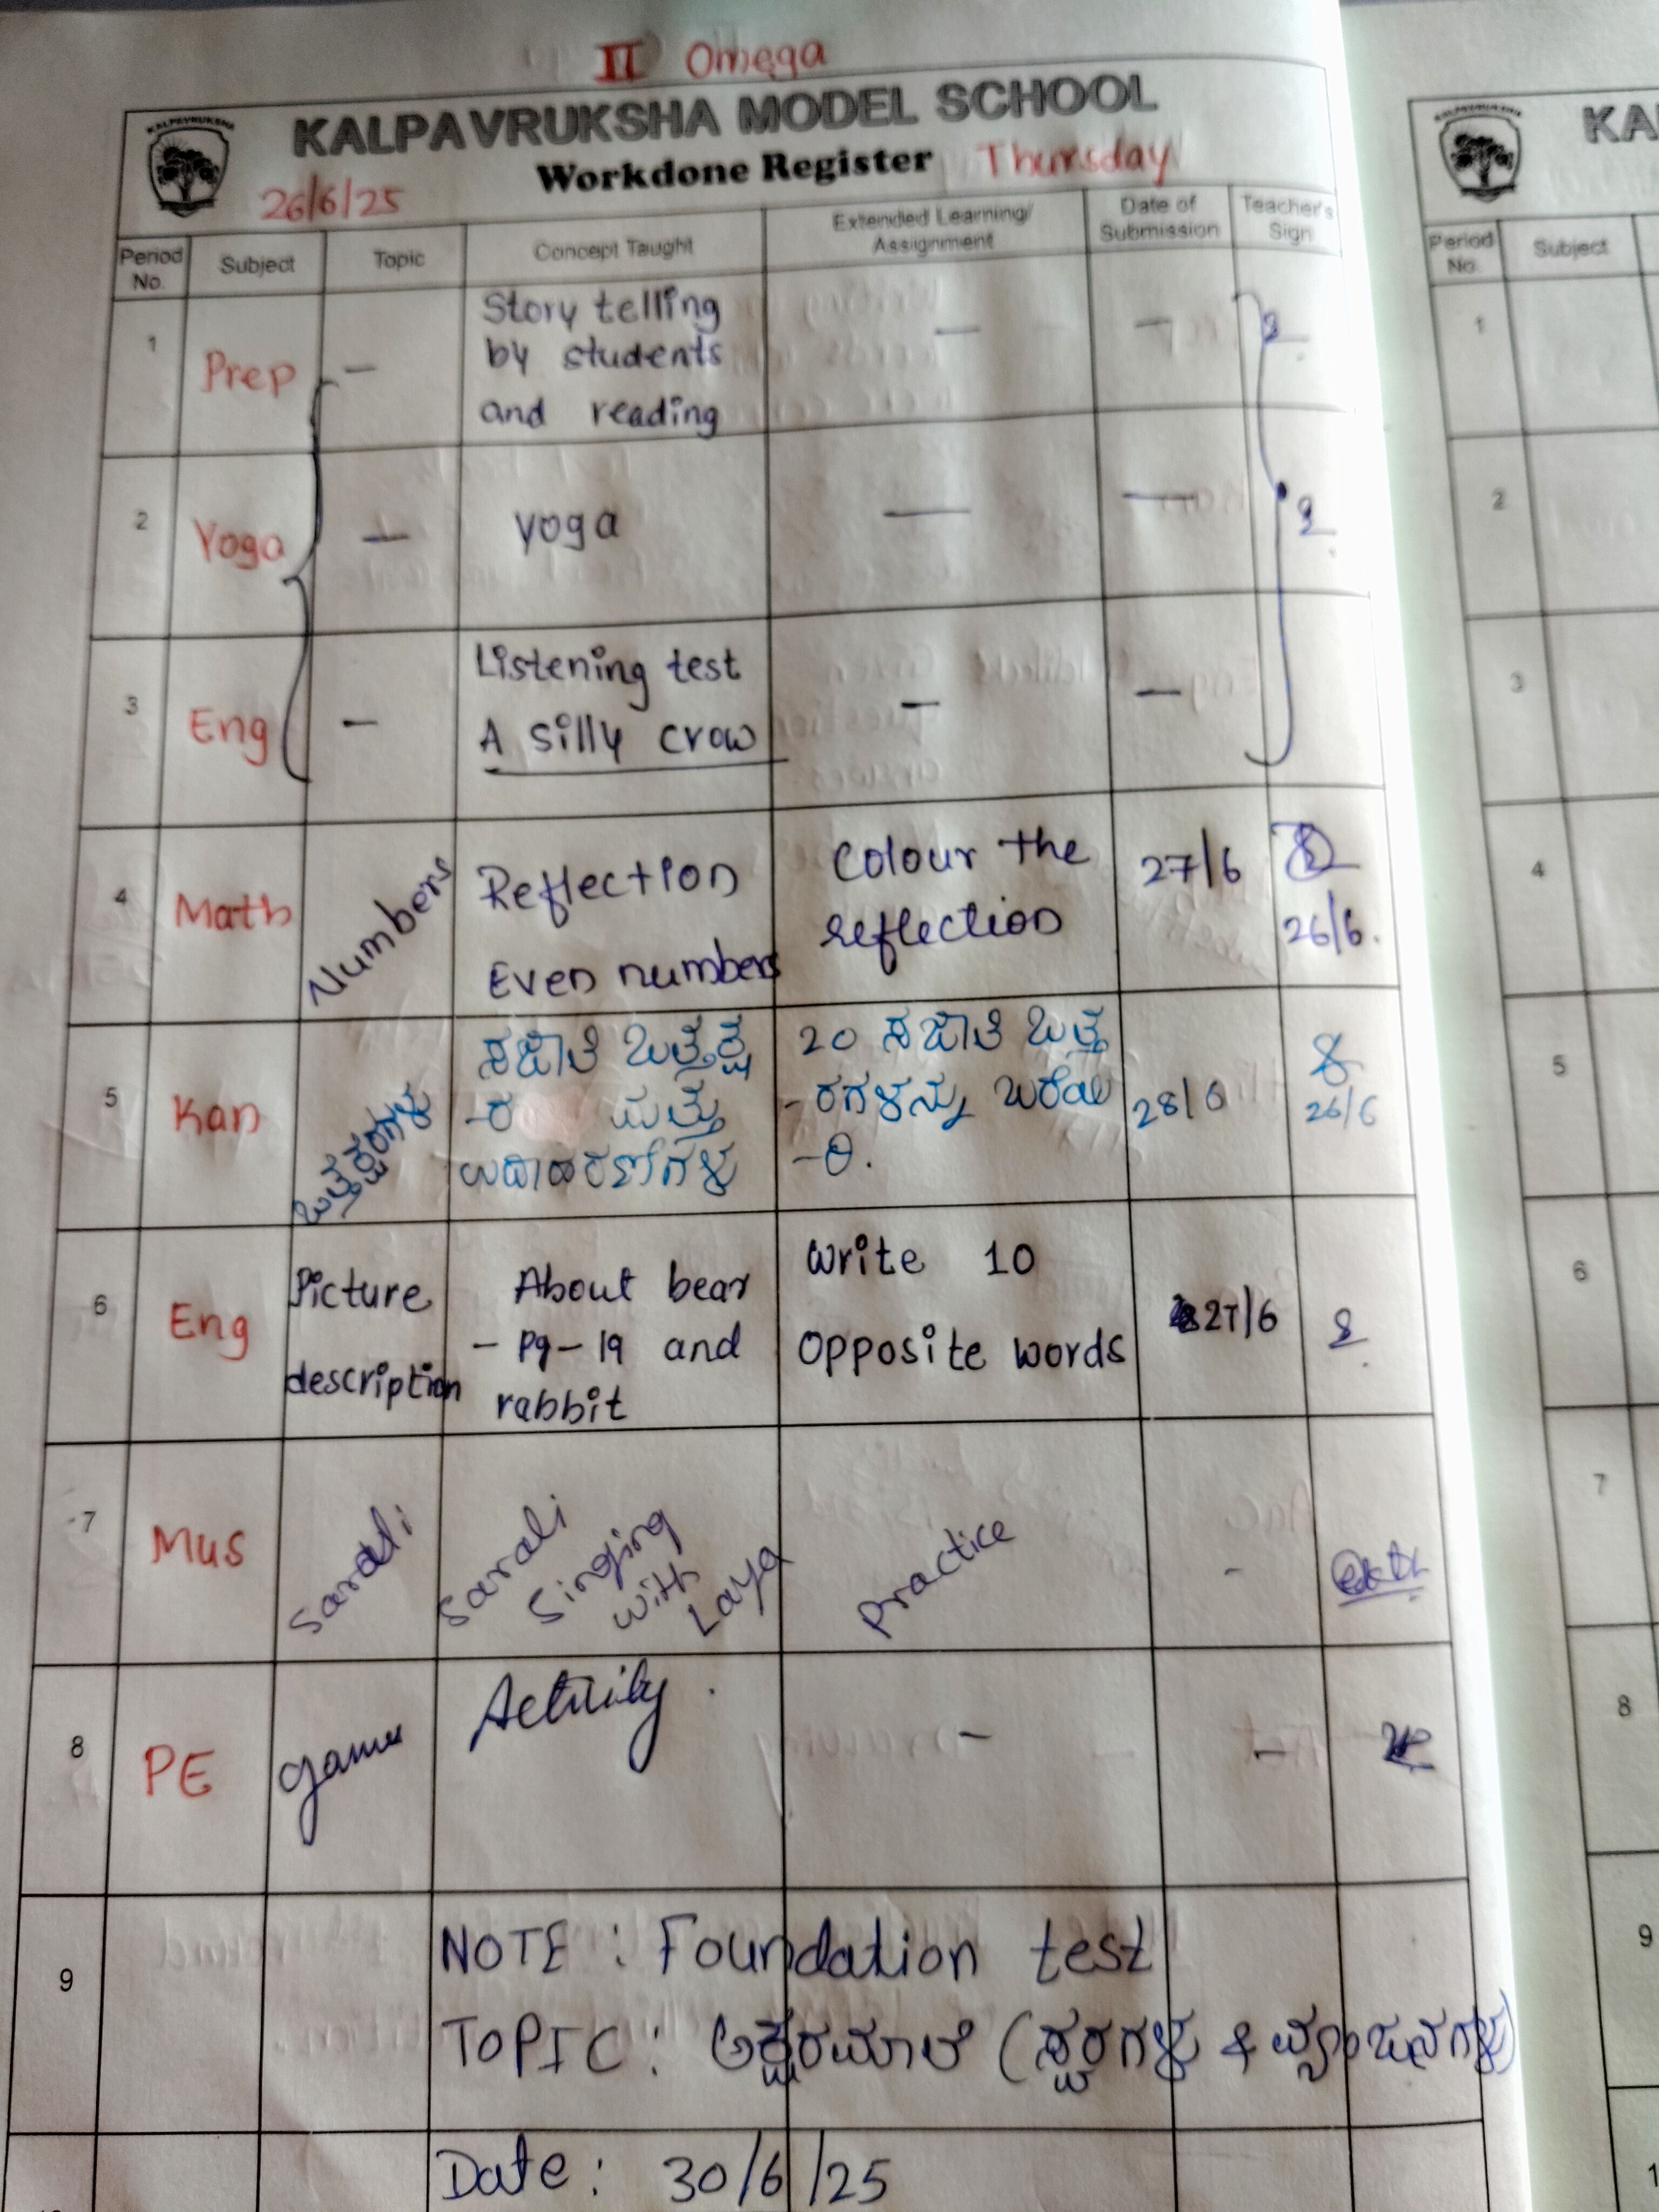 II Omega
KALPAVRUKSHA
KALPAVRUKSHA MODEL SCHOOL
Workdone Register Thursday
26/6/25
Period No. Subject Topic Concept Taught Extended Learning/ Assignment Date of Submission Teacher's Sign
1 Prep – Story telling by students and reading – –
2 Yoga – Yoga – –
3 Eng – Listening test A silly crow – –
4 Math Numbers Reflection Even numbers Colour the reflection 27/6 26/6.
5 Kan ಒತ್ತಕ್ಷರಗಳು ಸಜಾತಿ ಒತ್ತಕ್ಷ -ರ ಮತ್ತು ಉದಾಹರಣೆಗಳು 20 ಸಜಾತಿ ಒತ್ತ -ರಗಳನ್ನು ಬರೆಯಿ -ರಿ. 28/6 26/6
6 Eng Picture description About bear - Pg-19 and rabbit Write 10 opposite words 27/6
7 Mus Sarali Sarali Singing with Laya Practice -
8 PE games Activity. – –
9 NOTE : Foundation test
TOPIC : ಅಕ್ಷರಮಾಲೆ (ಸ್ವರಗಳು & ವ್ಯಂಜನಗಳು)
Date : 30/6/25
KALPAVRUKSHA
KA
Period No. Subject
1
2
3
4
5
6
7
8
9
1